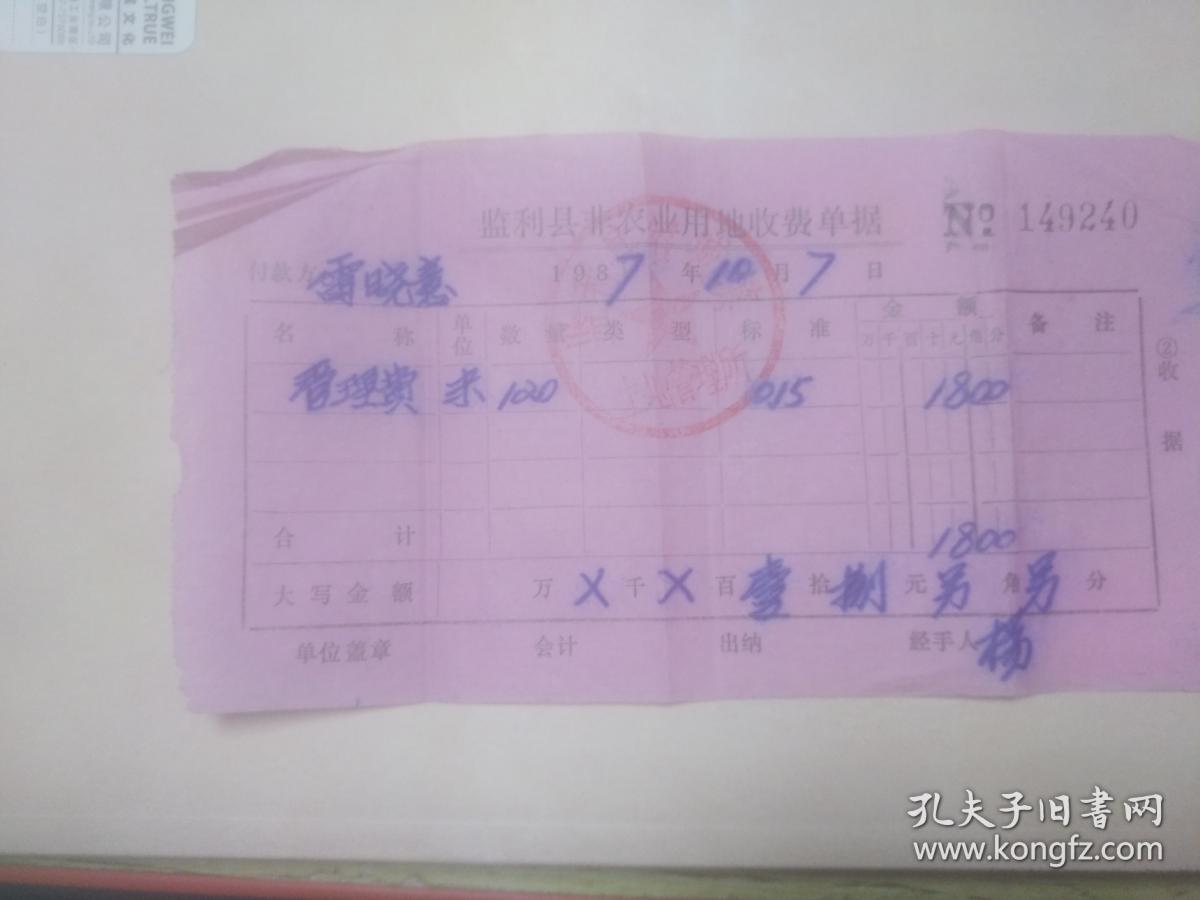 NGWEI
LTRUE
限公司
监利县非农业用地收费单据 No 149240
付款方 雷晓慧 1987年10月7日
名称 单位 数量 类型 标准 金额 备注
万千百十元角分
管理费 米 120 015 1800
合计 1800
大写金额 万 X 千 X 百 壹 拾 捌 元 另 角 另 分
单位盖章 会计 出纳 经手人 杨
②收据
土地管理所
孔夫子旧书网
www.kongfz.com